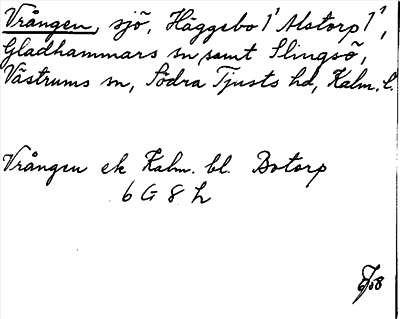 Vrången, sjö, Häggebo 1¹ Alstorp 1¹,
Gladhammars sn samt Slingsö,
Västrums sn, Södra Tjusts hd, Kalm. l.
Vrången ek Kalm. bl. Botorp
6 G 8 h